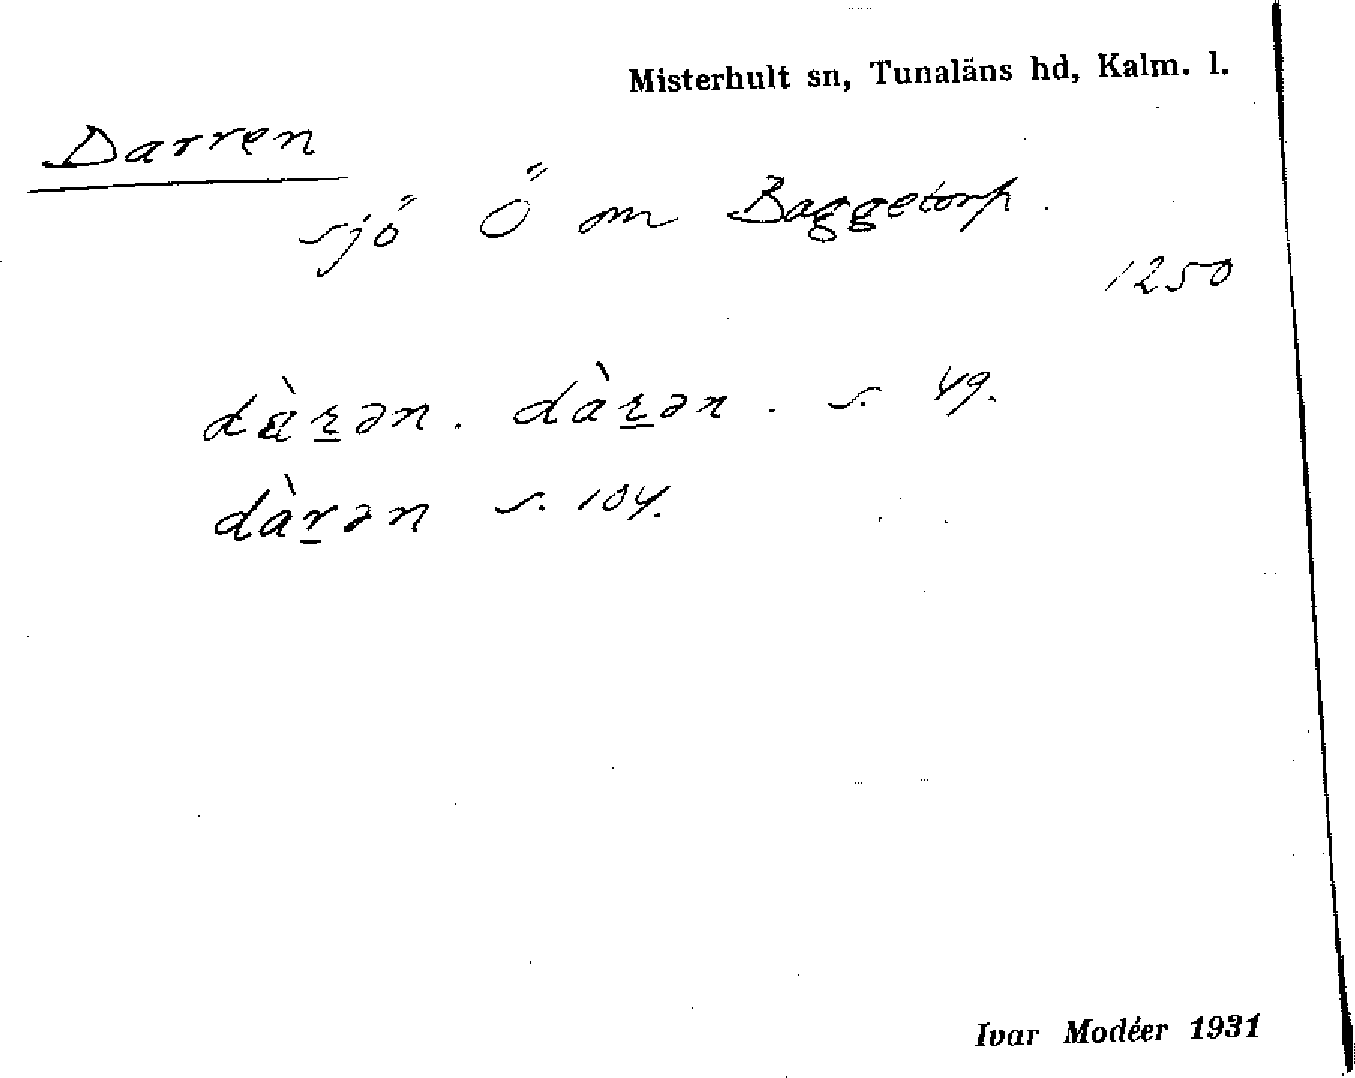 Misterhult sn, Tunaläns hd, Kalm. l.
Darren
sjö Ö om Baggetorp.
1250
dàr̲ən. dàr̲ən. s. 49.
dàr̲ən s. 104.
Ivar Modéer 1931